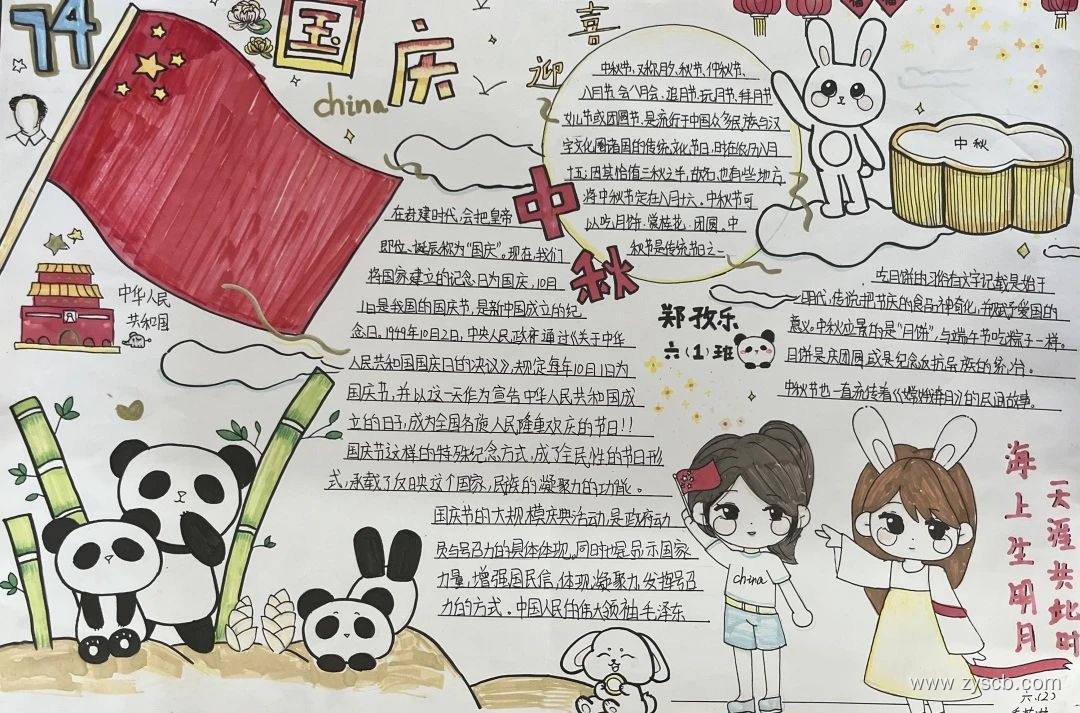 74
国
庆
china
喜
迎
中
秋
中秋节，又称月夕、秋节、仲秋节、
八月节、八月会、追月节、玩月节、拜月节
女儿节或团圆节，是流行于中国众多民族与汉
字文化圈诸国的传统文化节日，时在农历八月
十五；因其恰值三秋之半，故名，也有些地方
将中秋节定在八月十六。中秋节可
以吃月饼、赏桂花、团圆。中
秋节是传统节日之一
中秋
中华人民
共和国
在封建时代，会把皇帝
即位、诞辰称为“国庆”。现在，我们
将国家建立的纪念日为国庆，10月
1日是我国的国庆节，是新中国成立的纪
念日。1949年10月2日，中央人民政府通过《关于中华
人民共和国国庆日的决议》，规定每年10月1日为
国庆节，并以这一天作为宣告中华人民共和国成
立的日子，成为全国各族人民隆重欢庆的节日!!
国庆节这样的特殊纪念方式，成了全民性的节日形
式，承载了反映这个国家、民族的凝聚力的功能。
国庆节的大规模庆典活动，是政府动
员与号召力的具体体现。同时也是显示国家
力量，增强国民信，体现凝聚力，发挥号召
力的方式。中国人民的伟大领袖毛泽东
郑孜乐
六（1）班
吃月饼的习俗有文字记载是始于
明代，传说把节庆的食品神奇化，并赋予爱国的
意义。中秋应景的是“月饼”，与端午节吃粽子一样。
月饼是庆团圆，或是纪念反抗异族的统治。
中秋节也一直流传着《嫦娥奔月》的民间故事。
china
海上生明月
天涯共此时
www.zyscb.com
六.(2)